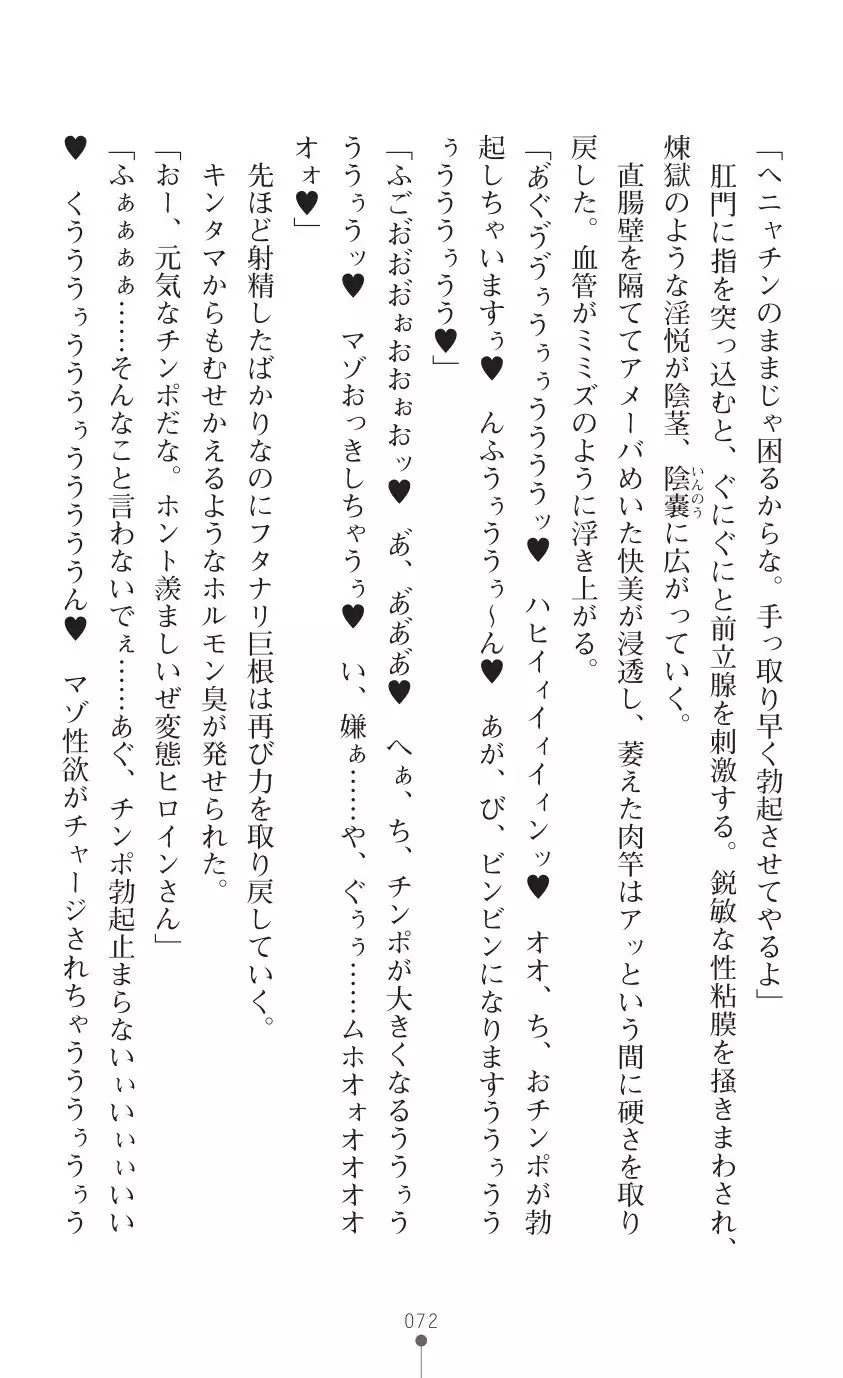 「ヘニャチンのままじゃ困るからな。手っ取り早く勃起させてやるよ」
肛門に指を突っ込むと、ぐにぐにと前立腺を刺激する。鋭敏な性粘膜を掻きまわされ、
煉獄のような淫悦が陰茎、陰嚢いんのうに広がっていく。
直腸壁を隔ててアメーバめいた快美が浸透し、萎えた肉竿はアッという間に硬さを取り
戻した。血管がミミズのように浮き上がる。
「あ゛ぐゔゔぅうぅぅううううッ♥　ハヒイィイィイィンッ♥　オオ、ち、おチンポが勃
起しちゃいますぅ♥　んふうぅううぅ～ん♥　あが、び、ビンビンになりますううぅうう
ぅうううぅうう♥」
「ふごお゛お゛お゛ぉおおぉおッ♥　あ゛、あ゛あ゛あ゛♥　へぁ、ち、チンポが大きくなるううぅう
ううぅうッ♥　マゾおっきしちゃうぅ♥　い、嫌ぁ……や、ぐぅぅ……ムホオォオオオオ
オォ♥」
先ほど射精したばかりなのにフタナリ巨根は再び力を取り戻していく。
キンタマからもむせかえるようなホルモン臭が発せられた。
「おー、元気なチンポだな。ホント羨ましいぜ変態ヒロインさん」
「ふぁぁぁぁ……そんなこと言わないでぇ……あぐ、チンポ勃起止まらないぃいぃぃいい
♥　くうううぅうううぅうううううん♥　マゾ性欲がチャージされちゃうううぅうぅう
072